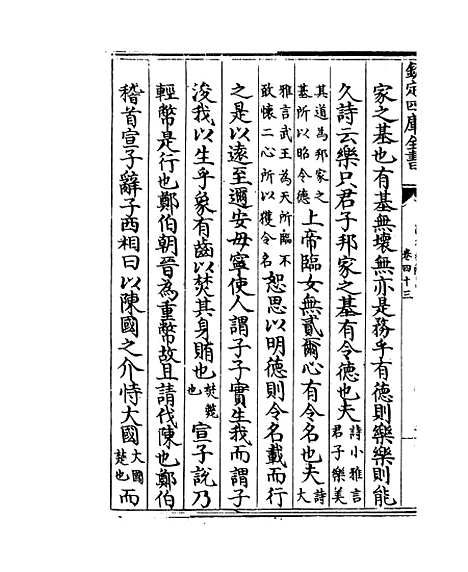 欽定四庫全書
卷四十三
家之基也有基無壞無亦是務乎有德則樂樂則能
久詩云樂只君子邦家之基有令德也夫詩小雅言君子樂美
其道為邦家之基所以昭令德上帝臨女無貳爾心有令名也夫詩大
雅言武王為天所臨不敢懷二心所以獲令名恕思以明德則令名載而行
之是以遠至邇安毋寧使人謂子子實生我而謂子
浚我以生乎象有齒以焚其身賄也焚斃也宣子說乃
輕幣是行也鄭伯朝晉為重幣故且請伐陳也鄭伯
稽首宣子辭子西相曰以陳國之介恃大國大國楚也而